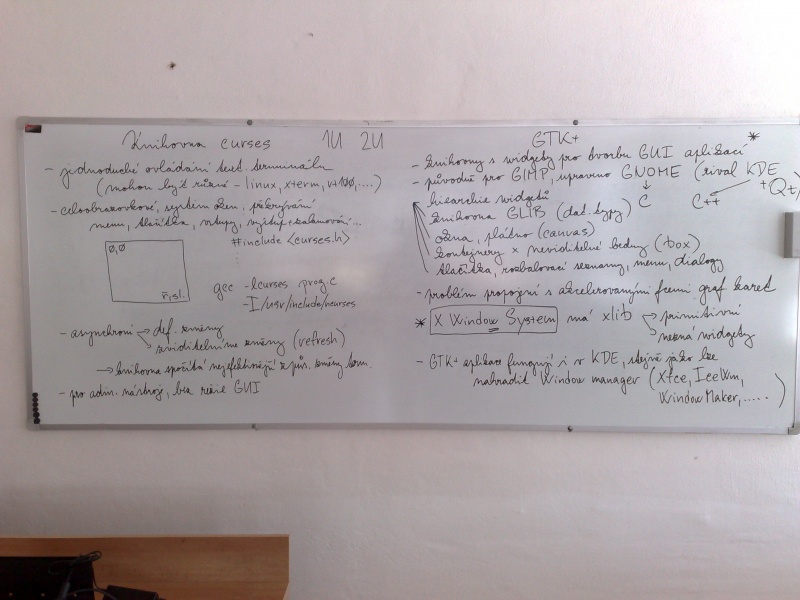 Knihovna curses 1U 2U
- jednoduché ovládání text. terminálu
(mohou být různé - linux, xterm, vt100, ....)
- celoobrazovkové, systém oken, překrývání
menu, tlačítka, vstupy, výstup + zalamování...
#include <curses.h>
0,0
řísl.
gcc -lcurses prog.c
-I/usr/include/ncurses
- asynchroní → def. změny
→ zviditelníme změny (refresh)
→ knihovna spočítá nejefektivnější způs. změny term.
- pro adm. nástroj, bez režie GUI
GTK+ *
- knihovny s widgety pro tvorbu GUI aplikací
- původně pro GIMP, upraveno GNOME (rival KDE
+Qt)
C C++
hierarchie widgetů
knihovna GLIB (dat. typy)
okna, plátno (canvas)
kontejnery × neviditelné bedny (box)
tlačítka, rozbalovací seznamy, menu, dialogy
- problém propojení s akcelerovanými fcemi graf karet
* X Window System má xlib → primitivní
→ nezná widgety
- GTK+ aplikace fungují i v KDE, stejně jako lze
nahradit Window manager (Xfce, IceWm,
WindowMaker, .....)